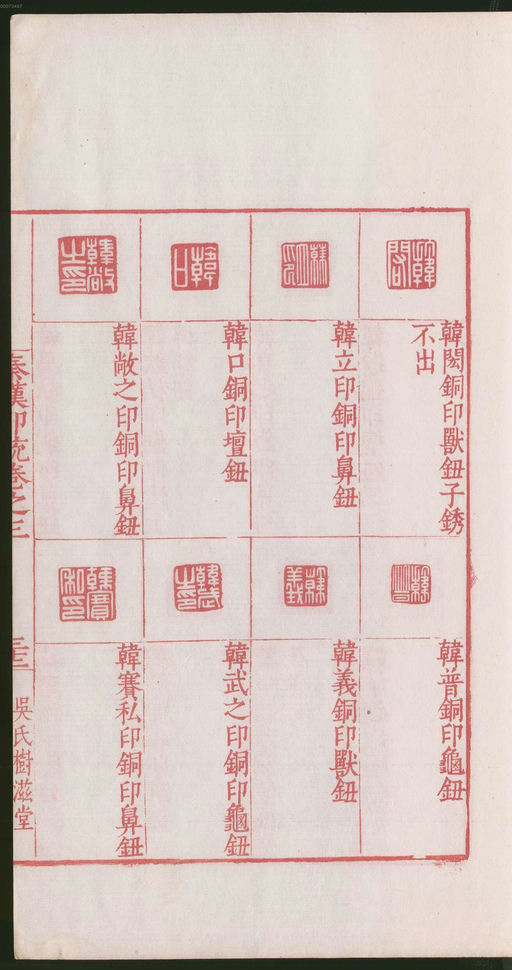 00073497
韓閎銅印獸鈕子銹
不出
韓立印銅印鼻鈕
韓口銅印壇鈕
韓敞之印銅印鼻鈕
韓普銅印龜鈕
韓義銅印獸鈕
韓武之印銅印龜鈕
韓賽私印銅印鼻鈕
秦漢印統卷之三
吳氏樹滋堂